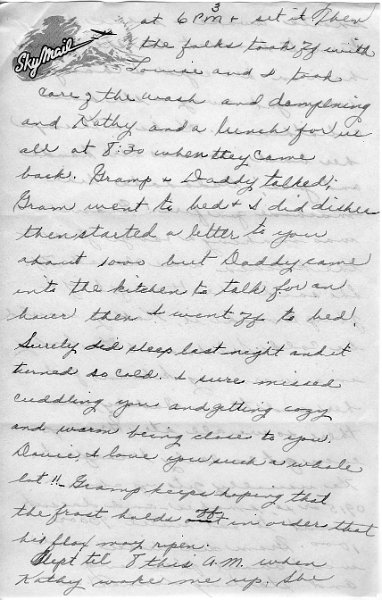 3
Sky Mail
at 6 PM & set it. Then
the folks took off with
Louise and I took
care of the wash and dampening
and Kathy and a lunch for us
all at 8:30 when they came
back. Gramp & Daddy talked;
Gram went to bed & I did dishes
then started a letter to you
about 1000 but Daddy came
into the kitchen to talk for an
hour then I went off to bed.
Surely did sleep last night and it
turned so cold. I sure missed
cuddling you and getting cozy
and warm being close to you.
I love you such a whole
lot!! Gramp keeps hoping that
the frost holds off in order that
his flax may ripen.
Slept til 8 this A.M. when
Kathy woke me up. She